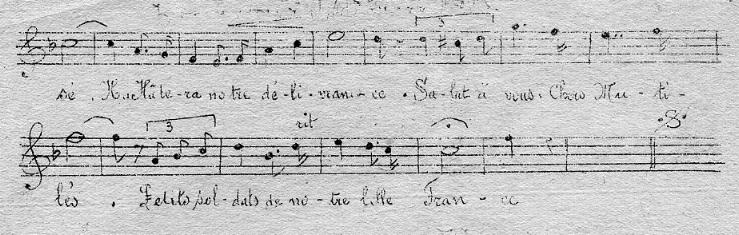 sé. Hachûte-ra no tre dé-li-vran-ce. Sa-lut à vous. Chers Mu-ti-
3
rit
lés. Petits sol-dats de no-tre belle Fran-ce
3